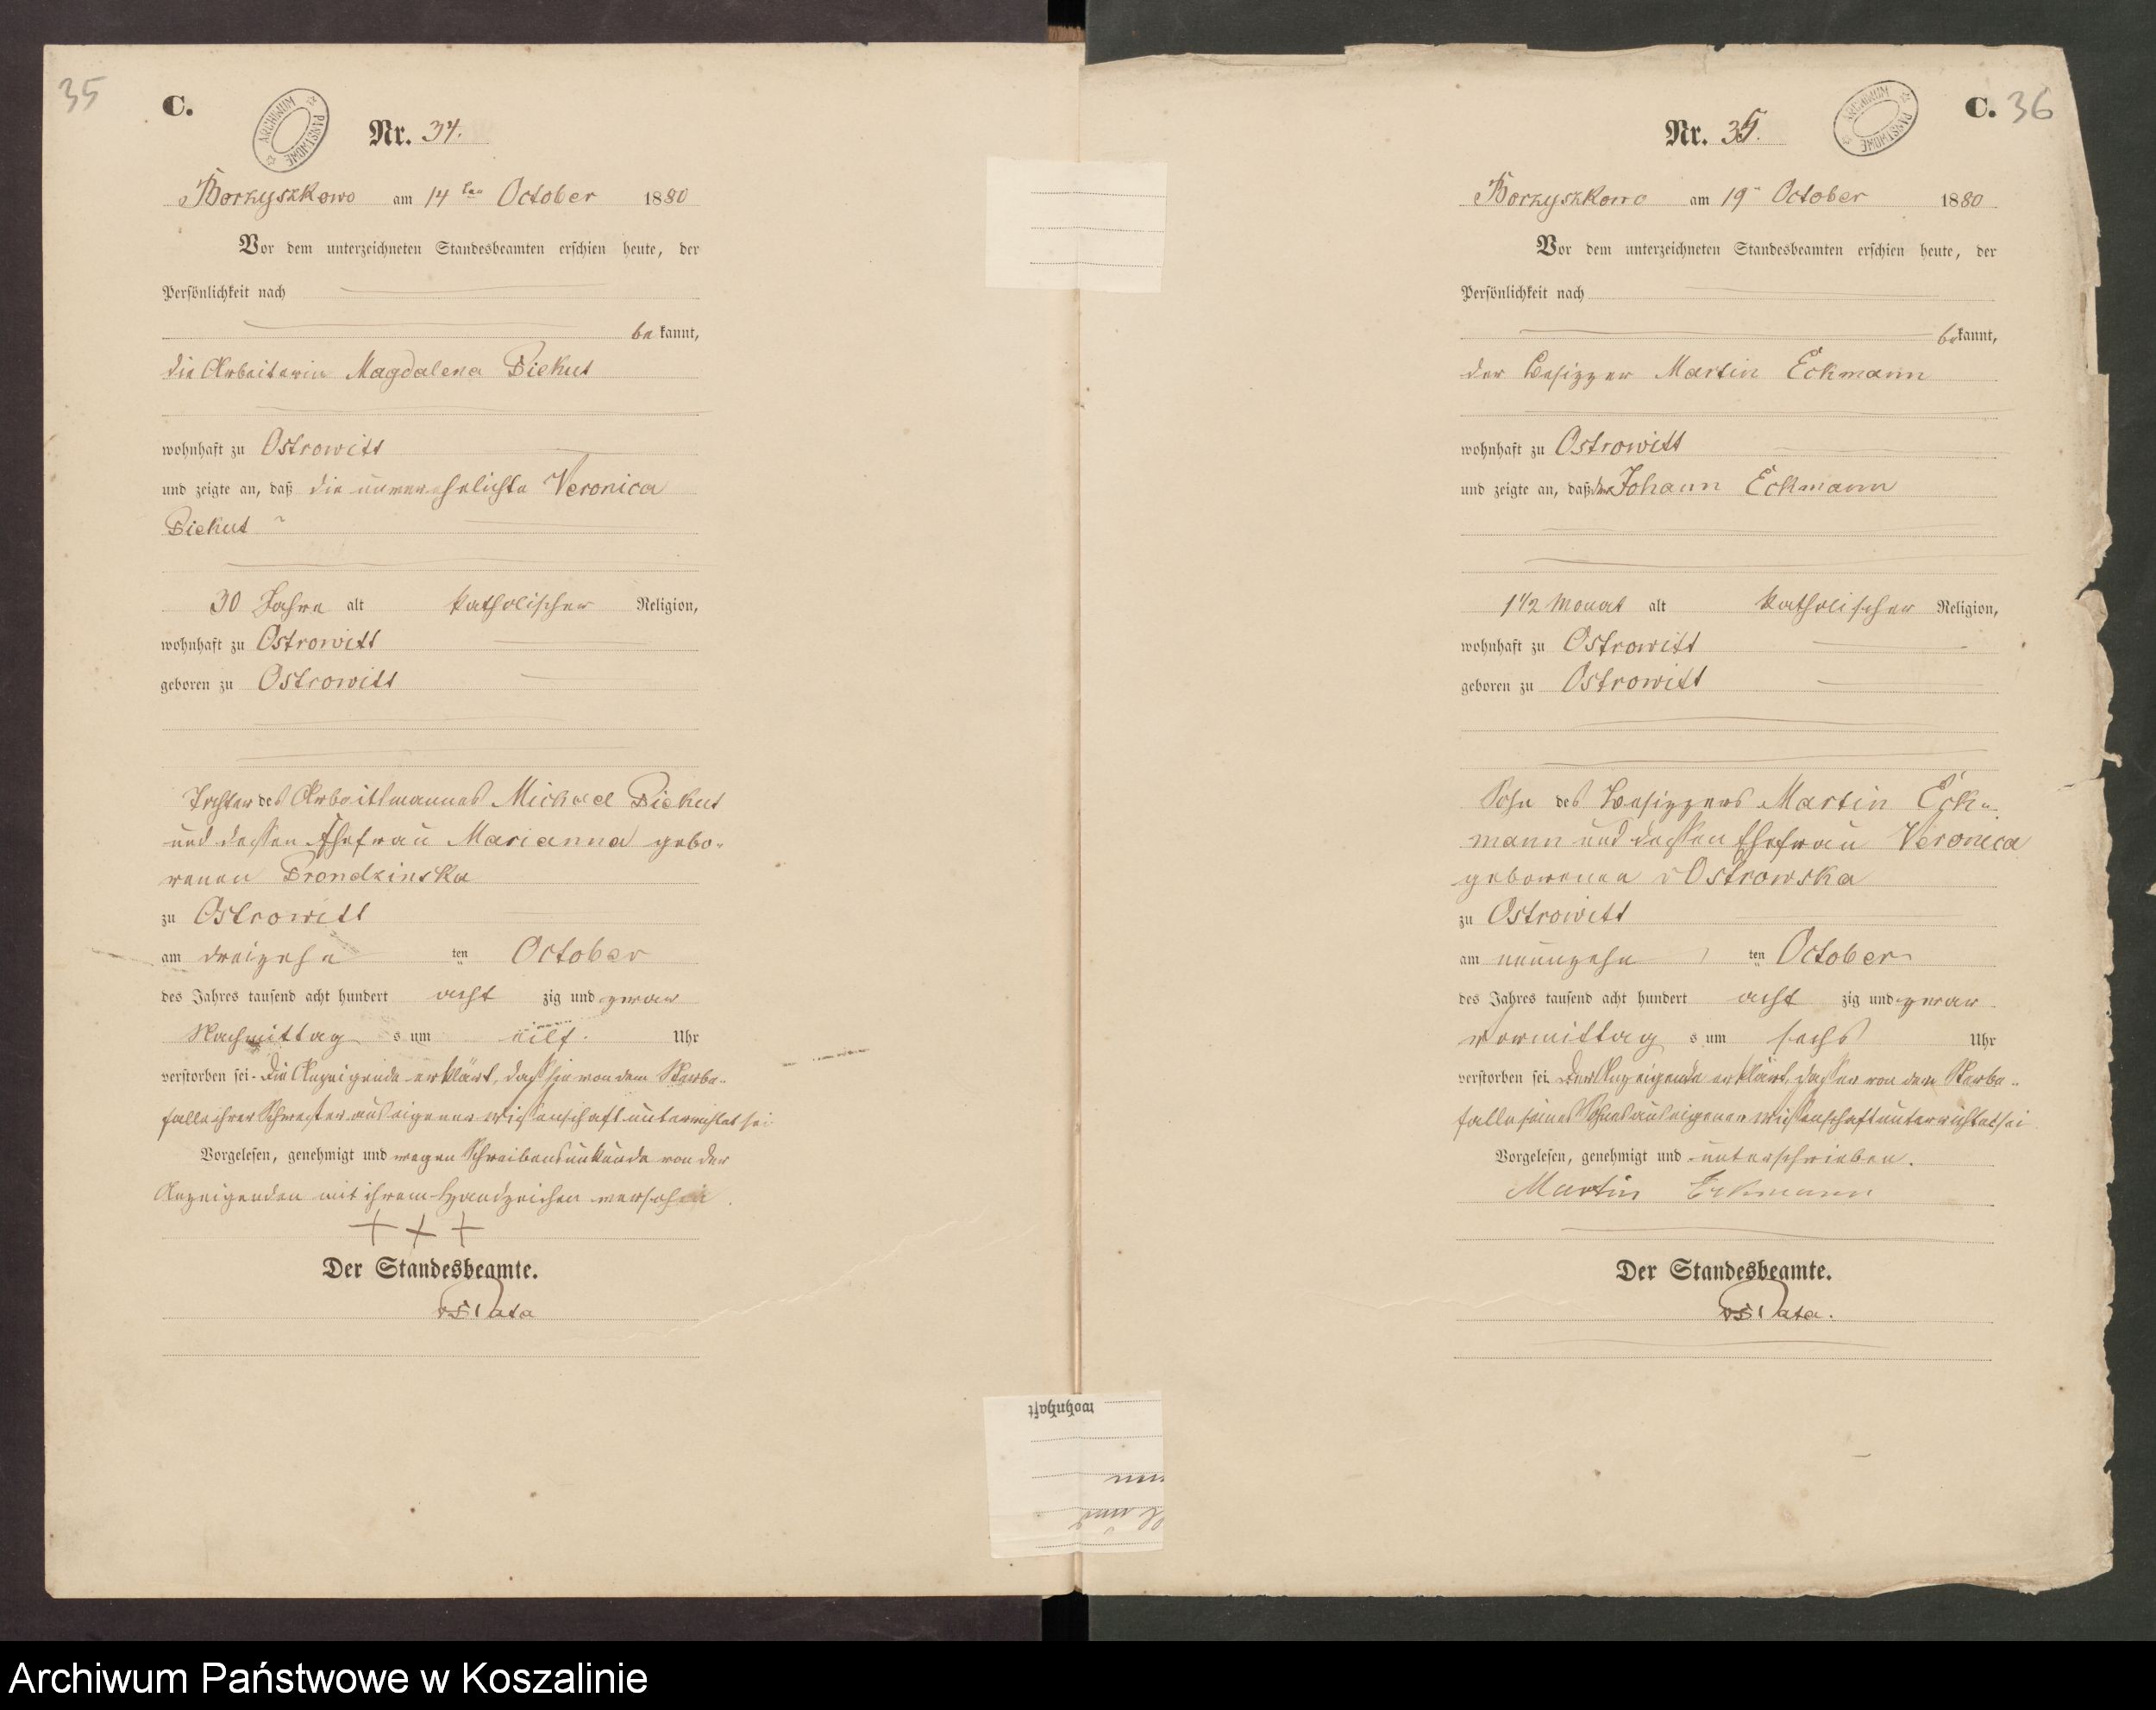 35
C.
ARCHIWUM PAŃSTWOWE
Nr. 34.
Borzyszkowo am 14ten October 1880
Vor dem unterzeichneten Standesbeamten erschien heute, der
Persönlichkeit nach
be kannt,
die Arbeiterin Magdalena Piekut
wohnhaft zu Ostrowitt
und zeigte an, daß die unverehelichte Veronica
Piekut
30 Jahre alt katholischer Religion,
wohnhaft zu Ostrowitt
geboren zu Ostrowitt
Tochter des Arbeitsmannes Michael Piekut
und dessen Ehefrau Marianna gebo-
renen Prondzinska
zu Ostrowitt
am dreizehn ten October
des Jahres tausend acht hundert acht zig und zwar
Nachmittag s um eilf Uhr
verstorben sei. Die Anzeigende erklärt, daß sie von dem Sterbe-
falle ihrer Schwester aus eigener Wissenschaft unterrichtet sei
Vorgelesen, genehmigt und wegen Schreibensunkunde von der
Anzeigenden mit ihrem Handzeichen versehen
+ + +
Der Standesbeamte.
C. 36
ARCHIWUM PAŃSTWOWE
Nr. 35.
Borzyszkowo am 19 October 1880
Vor dem unterzeichneten Standesbeamten erschien heute, der
Persönlichkeit nach
be kannt,
der Besitzer Martin Eckmann
wohnhaft zu Ostrowitt
und zeigte an, daß der Johann Eckmann
1 1/2 Monat alt katholischer Religion,
wohnhaft zu Ostrowitt
geboren zu Ostrowitt
Sohn des Besitzers Martin Eck-
mann und dessen Ehefrau Veronica
geborenen v Ostrowska
zu Ostrowitt
am neunzehn ten October
des Jahres tausend acht hundert acht zig und zwar
Vormittag s um sechs Uhr
verstorben sei. Der Anzeigende erklärt, daß er von dem Sterbe-
falle seines Sohnes aus eigener Wissenschaft unterrichtet sei
Vorgelesen, genehmigt und unterschrieben.
Martin Eckmann
Der Standesbeamte.
wohnhaft
Archiwum Państwowe w Koszalinie